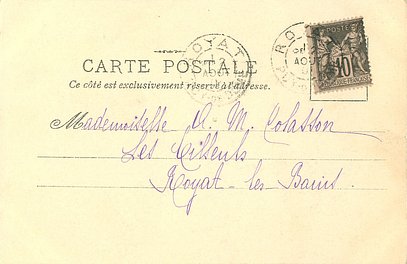 ROYAT
AOUT
RO
AOUT
10
CARTE POSTALE
Ce côté est exclusivement réservé à l'adresse.
Mademoiselle A. M. Colasson
Les Tilleuls
Royat-les-Bains